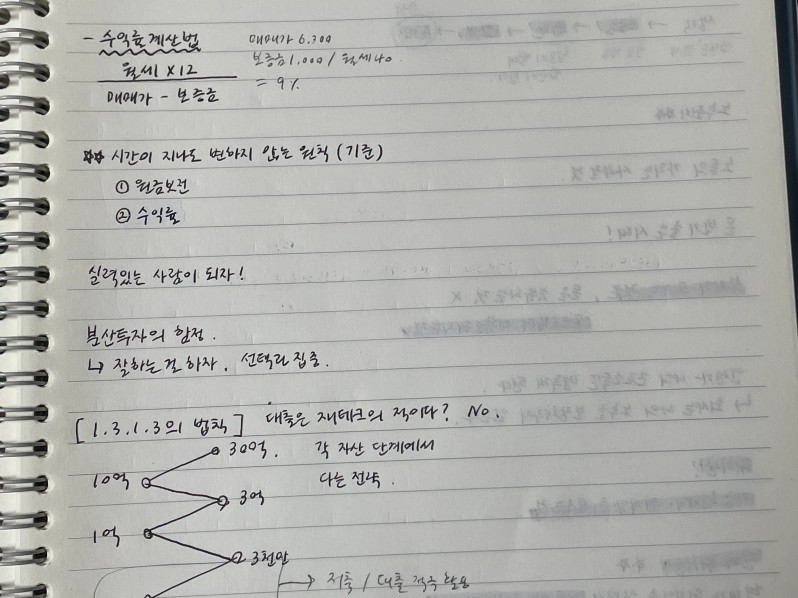 - 수익률계산법
매매가 6,300
월세 × 12
매매가 - 보증금
보증금 1,000 / 월세 40
= 9%
☆☆ 시간이 지나도 변하지 않는 원칙 (기준)
① 원금보전
② 수익률
실력있는 사람이 되자!
분산투자의 함정.
↳ 잘하는 걸 하자. 선택과 집중.
[1.3.1.3의 법칙] 대출은 재테크의 적이다? No.
30억. 각 자산 단계에서
10억 다른 전략.
3억
1억
3천만
→ 저축 / 대출 적극 활용